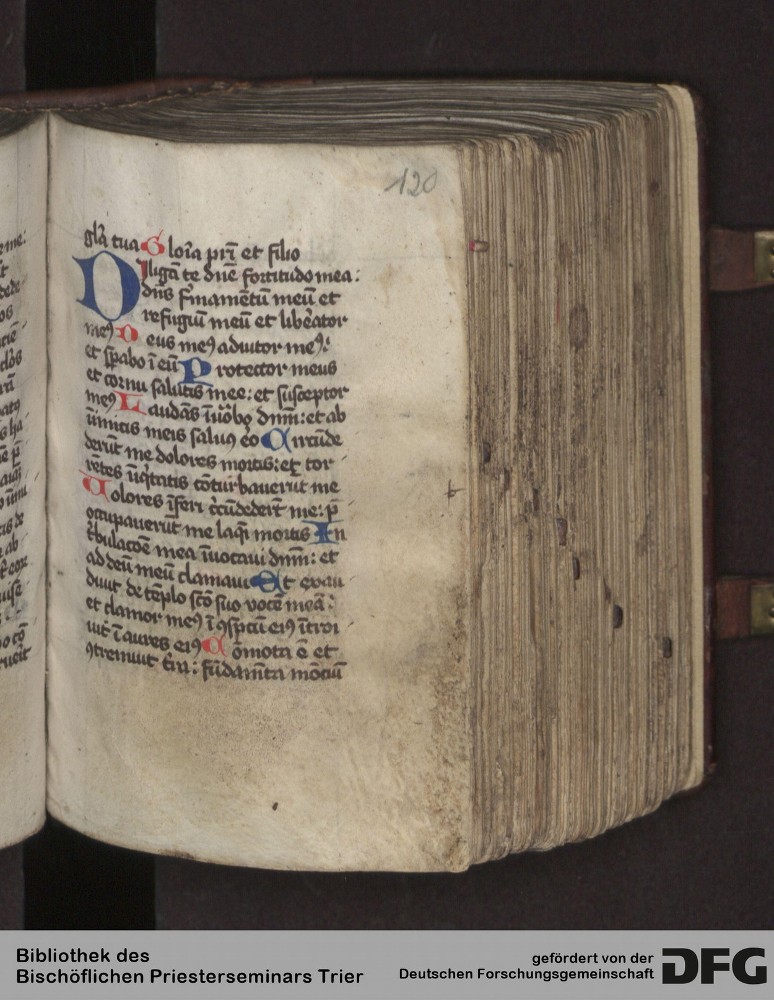 120
gła tua Gloꝛia pr̄i et filio
Diligā te dn̄e fortitudo mea:
dn̄s firmamētū meū et
refugiū meū et liberator
meꝰ Deus meꝰ adiutor meꝰ:
et sꝑabo ī eū Protector meus
et cornu salutis mee: et susceptor
meꝰ Laudās īuocabo dn̄m: et ab
inimicis meis saluꝰ ero Circūde
derūt me dolores mortis: et tor
rētes iniqitatis cōturbauerūt me
Dolores īferi circūdederūt me: p̄
occupauerūt me laqi mortis In
tribulacōe mea īuocaui dn̄m: et
ad deū meū clamaui Et exau
diuit de tēplo scō suo vocē meā:
et clamor meꝰ ī ꝯspectu eiꝰ introi
uit ī aures eiꝰ Cōmota ē et
ꝯtremuit tr̄ra: fūdamēta mōciū
Bibliothek des
Bischöflichen Priesterseminars Trier
gefördert von der
Deutschen Forschungsgemeinschaft
DFG